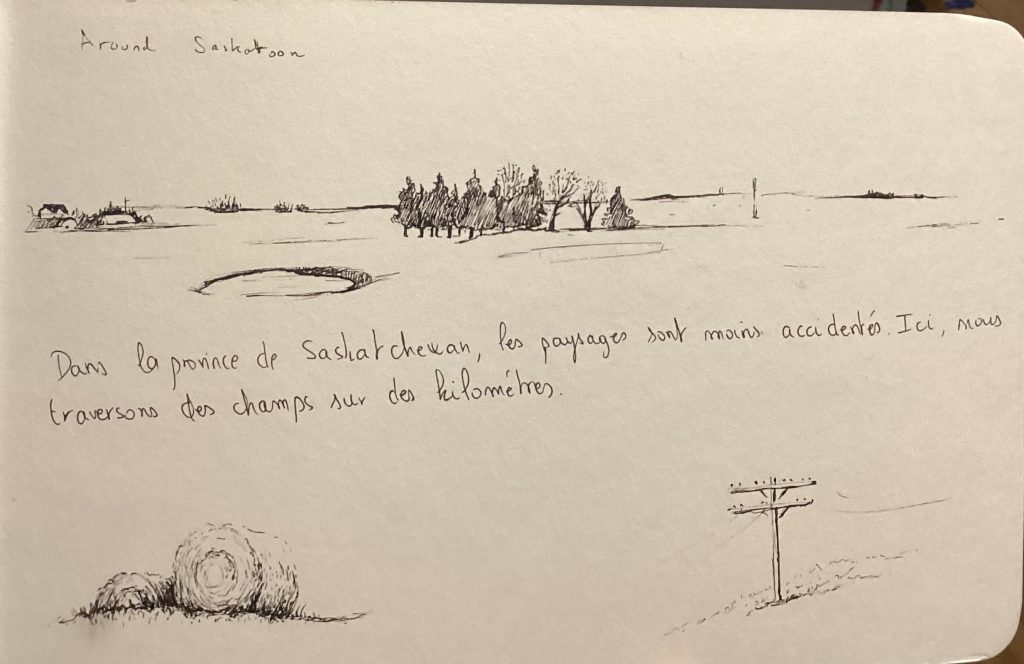 Around Saskatoon
Dans la province de Saskatchewan, les paysages sont moins accidentés. Ici, nous
traversons des champs sur des kilomètres.